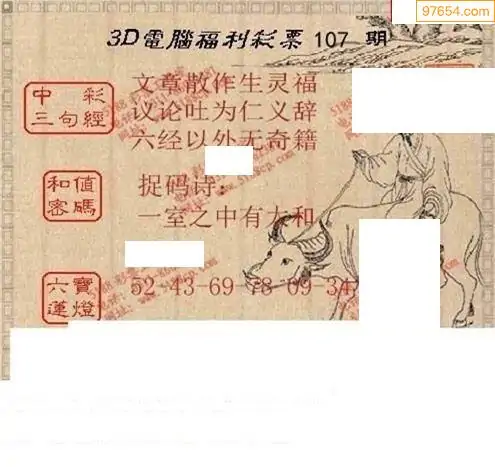 97654.com
3D電腦福利彩票 107 期
中彩三句經
文章散作生灵福
议论吐为仁义辞
六经以外无奇籍
和值密碼
捉码诗:
一室之中有太和
六寶蓮燈
52-43-69-78-09-34